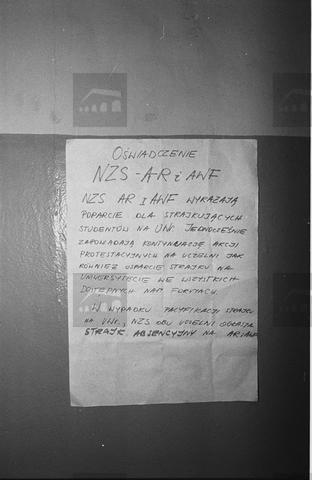 OŚWIADCZENIE
NZS-AR i AWF
NZS AR I AWF WYKAZAJĄ
POPARCIE DLA STRAJKUJĄCYCH
STUDENTÓW NA UWr. JEDNOCZEŚNIE
ZAPOWIADAJĄ KONTYNUACJĘ AKCJI
PROTESTACYJNYCH NA UCZELNI JAK
RÓWNIEŻ WSPARCIE STRAJKU NA
UNIWERSYTECIE WE WSZYSTKICH
DOSTĘPNYCH NAM FORMACH.
W WYPADKU PACYFIKACJI STRAJKU
NA UWr., NZS OBU UCZELNI OGŁASZA
STRAJK ABSENCYJNY NA AR i AWF